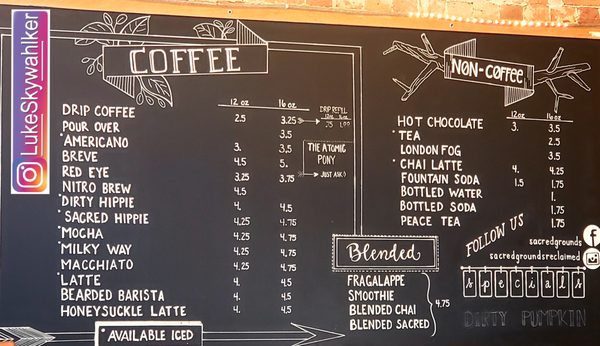 LukeSkywahlker
COFFEE
12 oz 16 oz
DRIP REFILL
12oz 16oz
DRIP COFFEE 2.5 3.25 .75 1.00
POUR OVER 3.5
*AMERICANO 3. 3.5
BREVE 4.5 5.
RED EYE 3.25 3.75
NITRO BREW 4.5
*DIRTY HIPPIE 4. 4.5
*SACRED HIPPIE 4.25 4.75
*MOCHA 4.25 4.75
*MILKY WAY 4.25 4.75
MACCHIATO 4.25 4.75
*LATTE 4. 4.5
BEARDED BARISTA 4. 4.5
HONEYSUCKLE LATTE 4. 4.5
*AVAILABLE ICED
THE ATOMIC
PONY
JUST ASK:)
Blended
FRAGALAPPE
SMOOTHIE
BLENDED CHAI
BLENDED SACRED
4.75
NON-COFFEE
12 oz 16 oz
HOT CHOCOLATE 3. 3.5
*TEA 2.5
LONDON FOG 3.5
*CHAI LATTE 4. 4.25
FOUNTAIN SODA 1.5 1.75
BOTTLED WATER 1.
BOTTLED SODA 1.75
PEACE TEA 1.75
FOLLOW US
sacredgrounds
sacredgroundsreclaimed
specials
DIRTY PUMPKIN